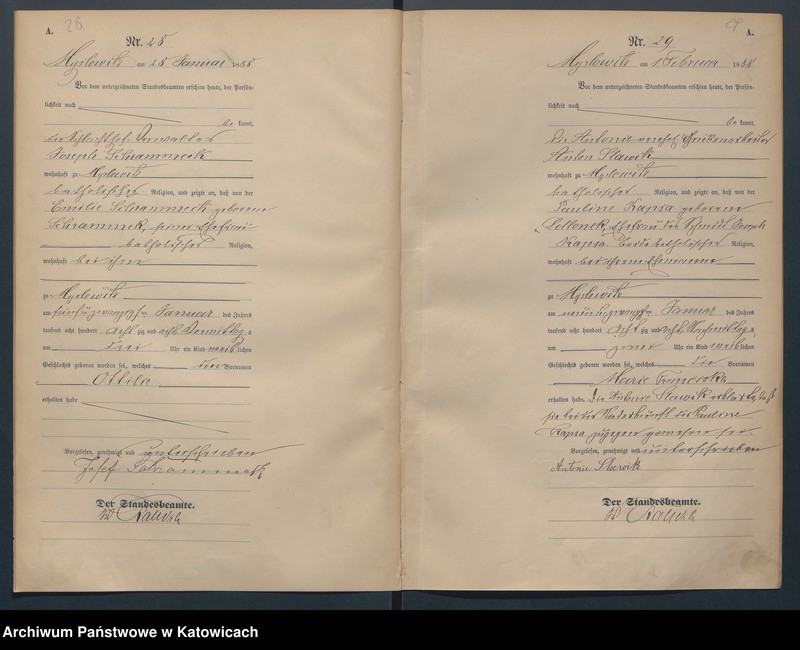 A. 28
Nr. 28
Myslowitz am 28 Januar 1888
Vor dem unterzeichneten Standesbeamten erschien heute, der Persön-
lichkeit nach
be kannt,
der Verwalter
Joseph Schrammeck
wohnhaft zu Myslowitz
katholischer Religion, und zeigte an, daß von der
Emilie Schrammeck geborenen
seiner Ehefrau
katholischer Religion,
wohnhaft bei ihm
zu Myslowitz
am fünfundzwanzigsten Januar des Jahres
tausend acht hundert acht zig und acht Vormittag s
um drei Uhr ein Kind weib lichen
Geschlechts geboren worden sei, welches den Vornamen
Ottilie
erhalten habe
Vorgelesen, genehmigt und unterschrieben
Josef Schrammeck
Der Standesbeamte.
A.
Nr. 29
Myslowitz am 1 Februar 1888
Vor dem unterzeichneten Standesbeamten erschien heute, der Persön-
lichkeit nach
be kannt,
die Antonie
Anton Slawik
wohnhaft zu Myslowitz
katholischer Religion, und zeigte an, daß von der
Pauline Kapsa geborenen
Ehefrau des Schmidt Joseph
Kapsa, beide katholischer Religion,
wohnhaft bei ihrem Ehemanne
zu Myslowitz
am neunundzwanzigsten Januar des Jahres
tausend acht hundert acht zig und acht Nachmittag s
um Uhr ein Kind weib lichen
Geschlechts geboren worden sei, welches die Vornamen
Marie Franciska
erhalten habe. Die Antonie Slawik erklärte, daß
sie bei der Niederkunft der Pauline
Kapsa zugegen gewesen sei.
Vorgelesen, genehmigt und unterschrieben
Antonie Slawik
Der Standesbeamte.
Archiwum Państwowe w Katowicach